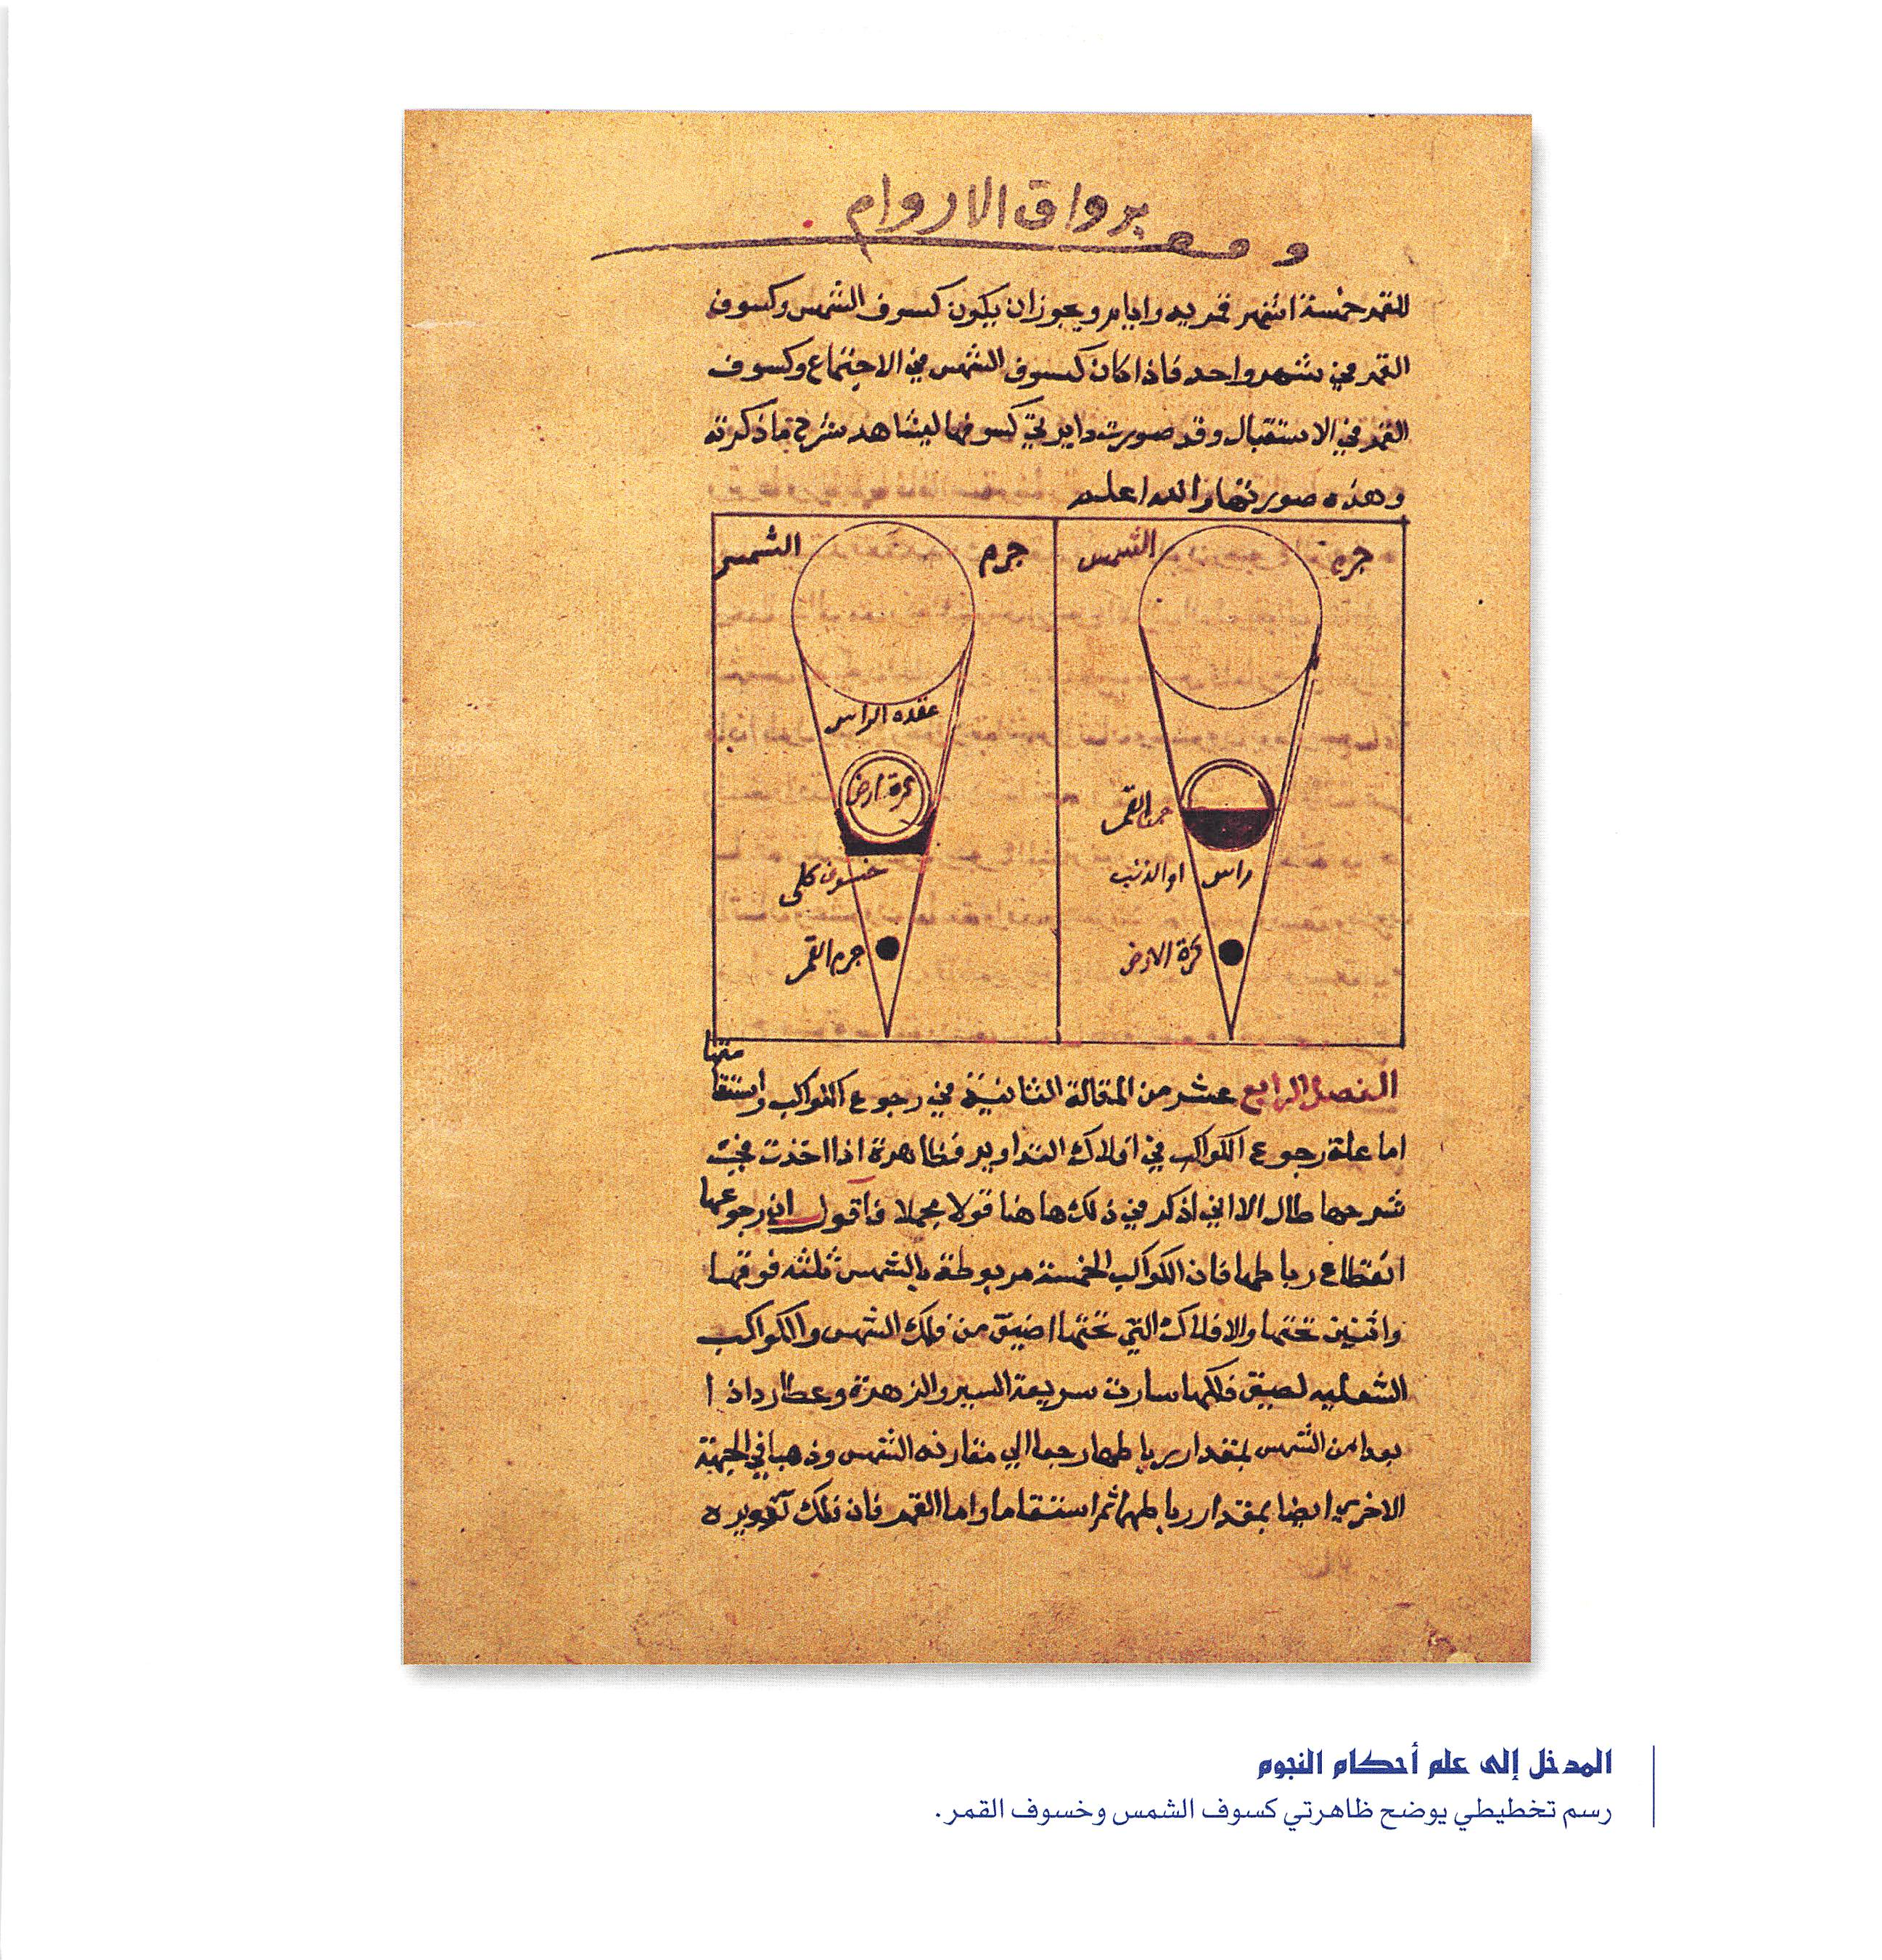 برواق الاروام
وقف
للقمر خمسة اشهر قمريه وايام ويجوز ان يكون كسوف الشمس وكسوف
القمر في شهر واحد فاذا كان كسوف الشمس في الاجتماع وكسوف
القمر في الاستقبال وقد صورت دايرتي كسوفها ليشاهد شرح ما ذكرته
وهذه صورتها والله اعلم
جرم الشمس
القمر
راس او الذنب
كرة الارض
جرم الشمس
عقده الراس
كرة ارض
خسوف كلى
جرم القمر
الفصل الرابع عشر من المقالة الثانية في رجوع الكواكب واستقا
متها
اما علة رجوع الكواكب في افلاك التداوير فظاهرة اذا اخذت في
شرحها طال الا اني اذكر في ذلك هاهنا قولا مجملا فاقول ان رجوعها
انقطاع رباطها فان الكواكب الخمسة مربوطة بالشمس ثلثه فوقها
واثنين تحتها والافلاك التي تحتها اضيق من فلك الشمس والكواكب
السفليه لضيق فلكها سارت سريعة السير والزهرة وعطارد اذا
بعدا من الشمس بمقدار رباطهما رجعا الي مقارنه الشمس وذهبا في الجهة
الاخري ايضا بمقدار رباطهما ثم استقاما واما القمر فان فلك تدويره
المدخل إلى علم أحكام النجوم
رسم تخطيطي يوضح ظاهرتي كسوف الشمس وخسوف القمر.